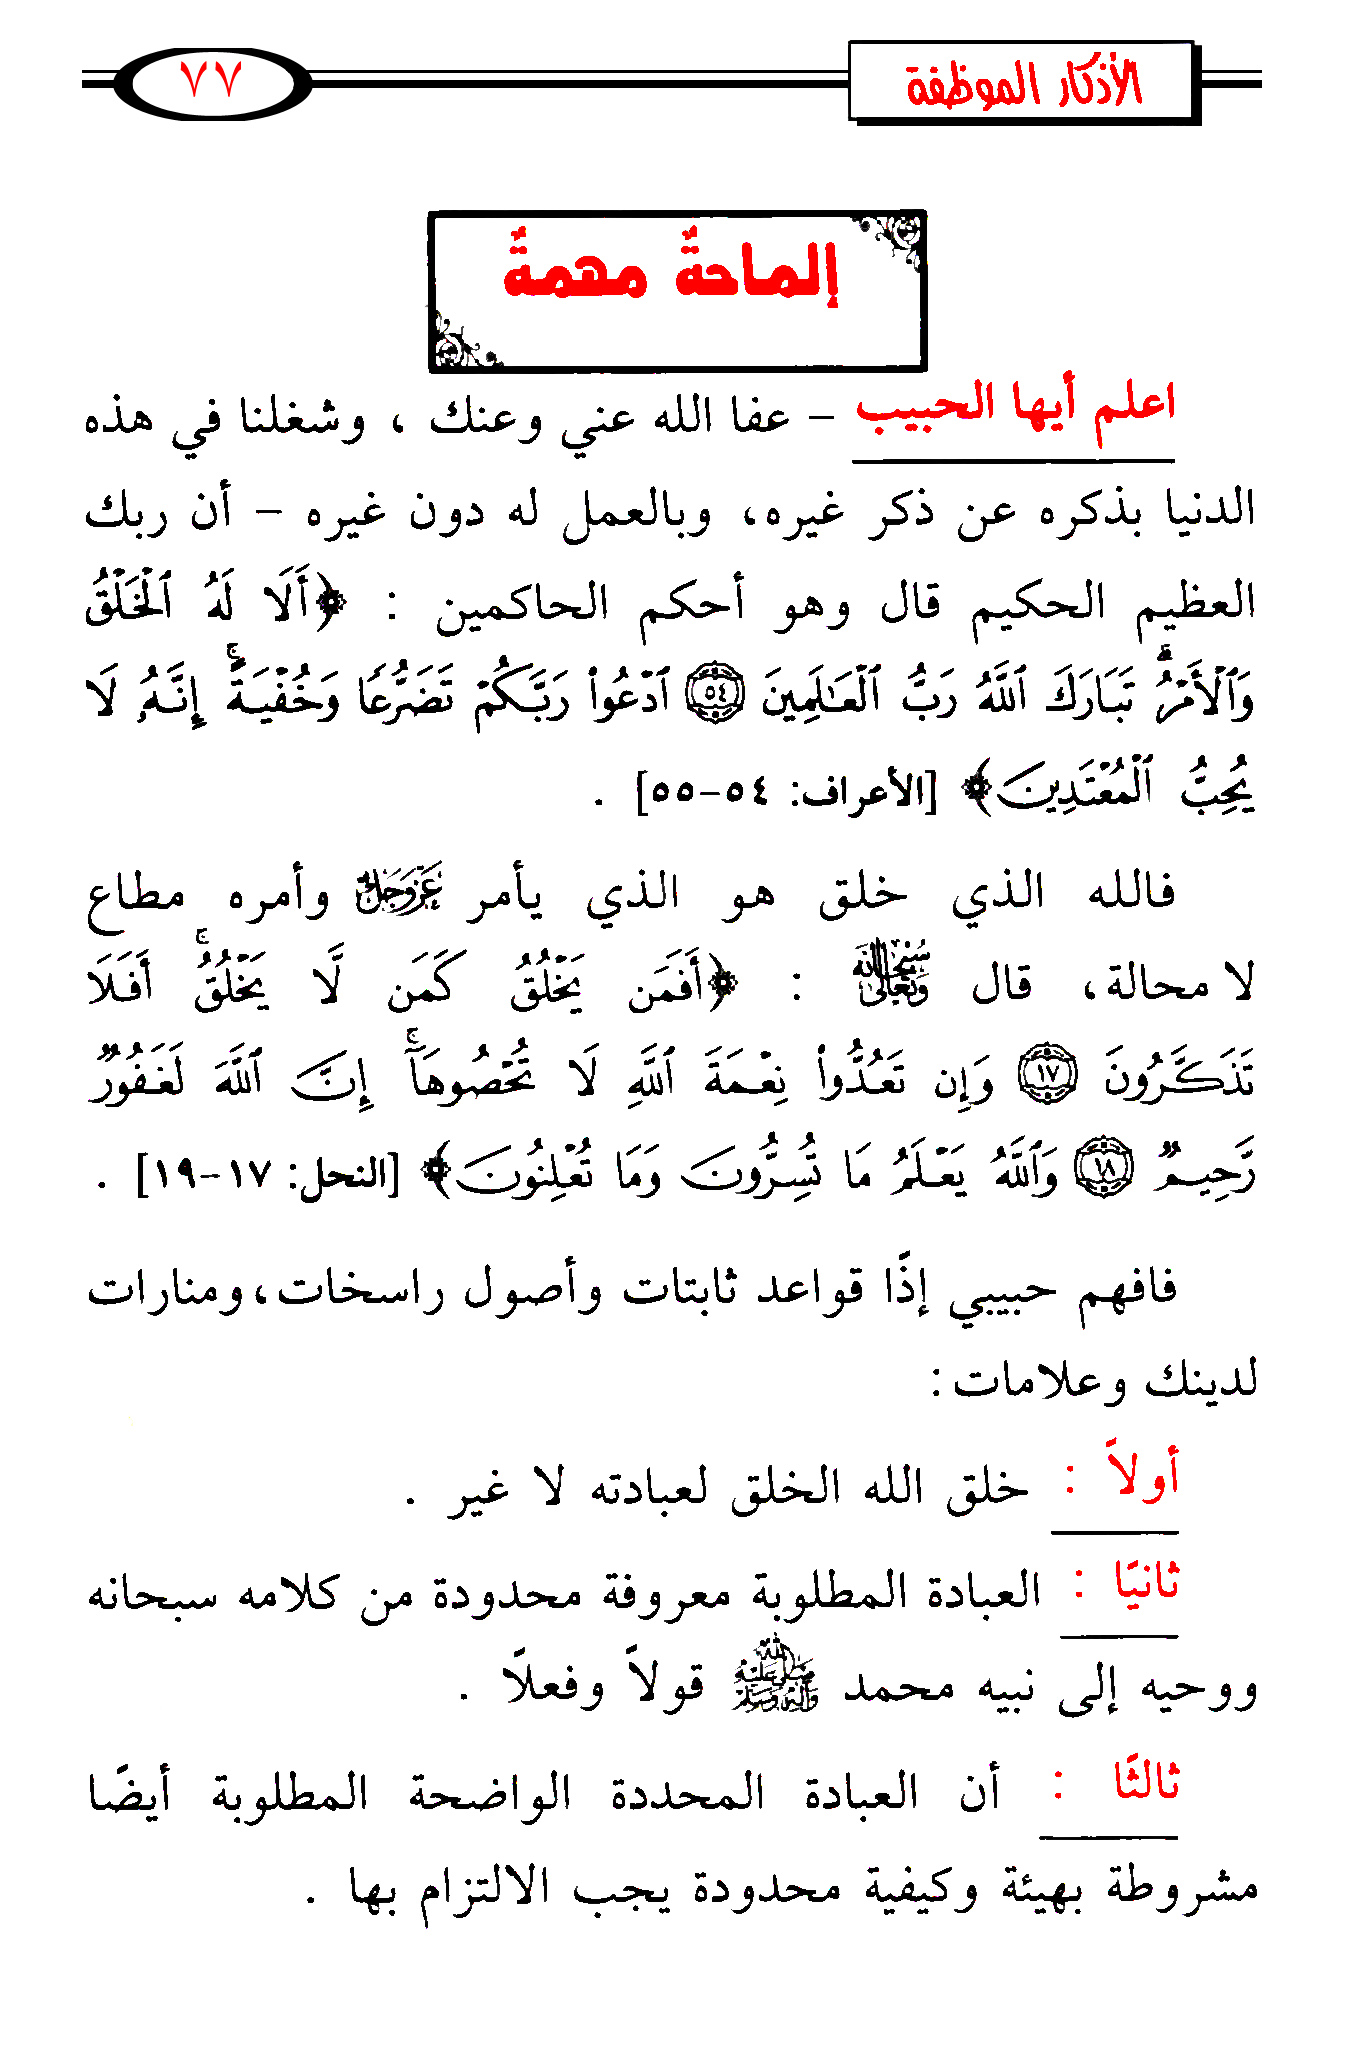 الأذكار الموظفة
٧٧
إلماحةٌ مهمةٌ
اعلم أيها الحبيب – عفا الله عني وعنك ، وشغلنا في هذه
الدنيا بذكره عن ذكر غيره، وبالعمل له دون غيره – أن ربك
العظيم الحكيم قال وهو أحكم الحاكمين : ﴿أَلَا لَهُ ٱلْخَلْقُ
وَٱلْأَمْرُۗ تَبَارَكَ ٱللَّهُ رَبُّ ٱلْعَـٰلَمِينَ ٥٤ ٱدْعُوا۟ رَبَّكُمْ تَضَرُّعًا وَخُفْيَةًۚ إِنَّهُۥ لَا
يُحِبُّ ٱلْمُعْتَدِينَ﴾ [الأعراف: ٥٤-٥٥] .
فالله الذي خلق هو الذي يأمر عَزَّوَجَلَّ وأمره مطاع
لا محالة، قال سُبْحَانَهُ وَتَعَالَىٰ : ﴿أَفَمَن يَخْلُقُ كَمَن لَّا يَخْلُقُۚ أَفَلَا
تَذَكَّرُونَ ١٧ وَإِن تَعُدُّوا۟ نِعْمَةَ ٱللَّهِ لَا تُحْصُوهَآۚ إِنَّ ٱللَّهَ لَغَفُورٌ
رَّحِيمٌ ١٨ وَٱللَّهُ يَعْلَمُ مَا تُسِرُّونَ وَمَا تُعْلِنُونَ﴾ [النحل: ١٧-١٩] .
فافهم حبيبي إذًا قواعد ثابتات وأصول راسخات، ومنارات
لدينك وعلامات :
أولاً : خلق الله الخلق لعبادته لا غير .
ثانيًا : العبادة المطلوبة معروفة محدودة من كلامه سبحانه
ووحيه إلى نبيه محمد صَلَّى اللَّهُ عَلَيْهِ وَآلِهِ وَسَلَّمَ قولاً وفعلًا .
ثالثًا : أن العبادة المحددة الواضحة المطلوبة أيضًا
مشروطة بهيئة وكيفية محدودة يجب الالتزام بها .